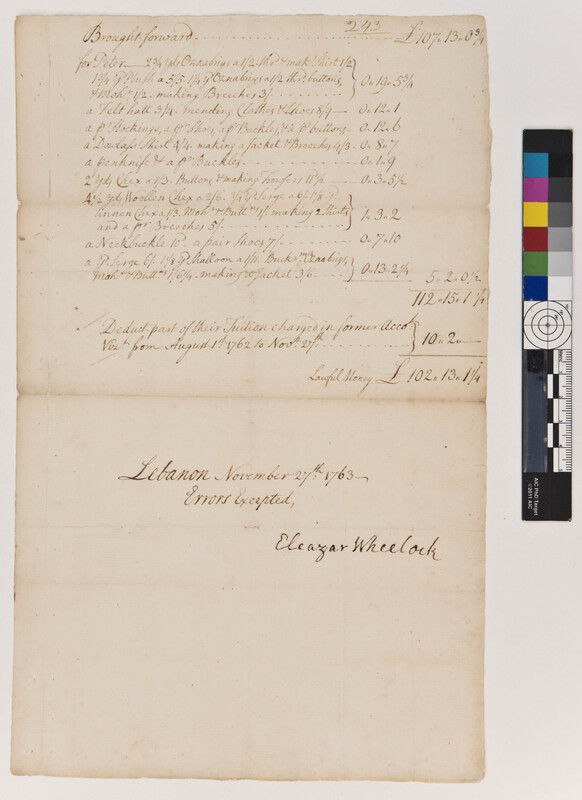 243
Brought forward £107,,13,,0¾
for Peter 2¾ yds Oznabrigs a 1/2 thrd & makg Shirt 1/2
1¾ yd Plush a 5/5. 1¼ yd Oznabrigs a 1/2 thrd, buttons,
& Mohr 1/2. making Breeches 3/. 0,,19,,5¾
a Felt hatt 3/4. mending Cloathes & Shoes 8/9 0,,12,,1
a pr Stockings, a pr Shoes, a pr Buckles, & pr buttons. 0,,12,,6
a Dowlass Shirt 4/4. making a Jacket & Breeches 4/3 0,,8,,7
a penknife & a pr Buckles. 0,,1,,9
2 yds Chex a 1/3. Buttons & making Trousers 11½ 0,,3,,5½
4½ yds Woollen Chex a 2/6. ¾ yd Serge a 6/. 1/8 yd
Linnen Chex a 1/3. Mohr & Buttns 1/. making 2 Shirts
and a pr Breeches 3/. 1,,3,,2
a Neckbuckle 10d. a pair Shoes 7/. 0,,7,,10
a yd Serge 6/. 1⅛ yd Shalloon a 1/11. Buckm, Oznabrigs,
Mohr & Buttns 1/6¼. making a Jacket 3/6. 0,,13,,2¼
5,,2,,0½
112,,15,,1¼
Deduct part of their Tuition charged in former Accot
Vizt from August 1st 1762 to Novr 27th 10,,2,,
Lawful Money £ 102,,13,,1¼
Lebanon November 27th 1763
Errors Excepted,
Eleazar Wheelock
AIC PhD Target
©2011 AIC